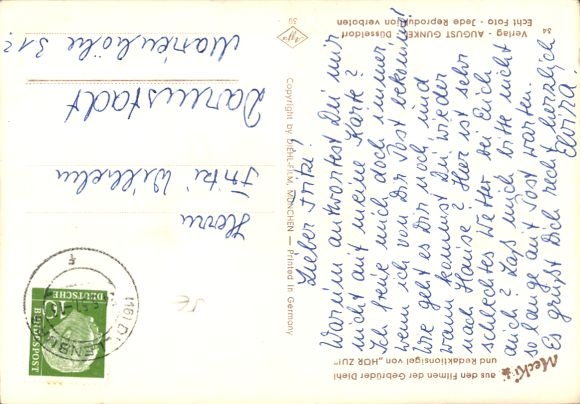 Lieber Fritz!
Warum antwortest Du mir
nicht auf meine Karte?
Ich freue mich doch immer,
wenn ich von Dir Post bekomme!
Wie geht es Dir noch und
wann kommst Du wieder
nach Hause? Hier ist sehr
schlechtes Wetter bei Euch
auch? Laß mich bitte nicht
so lange auf Post warten.
Es grüßt Dich recht herzlich
Elvira!
Herrn
Wilhelm
Darmstadt
Marienhöhe
34
Verlag - AUGUST GUNKEL Düsseldorf
Echt Foto - Jede Reproduktion verboten
Agfa
Copyright by DIEHL-FILM, MÜNCHEN — Printed in Germany
Mecki
aus den Filmen der Gebrüder Diehl
und Redaktionsigel von „HÖR ZU!"
10
DEUTSCHE
BUNDESPOST
(16) DI